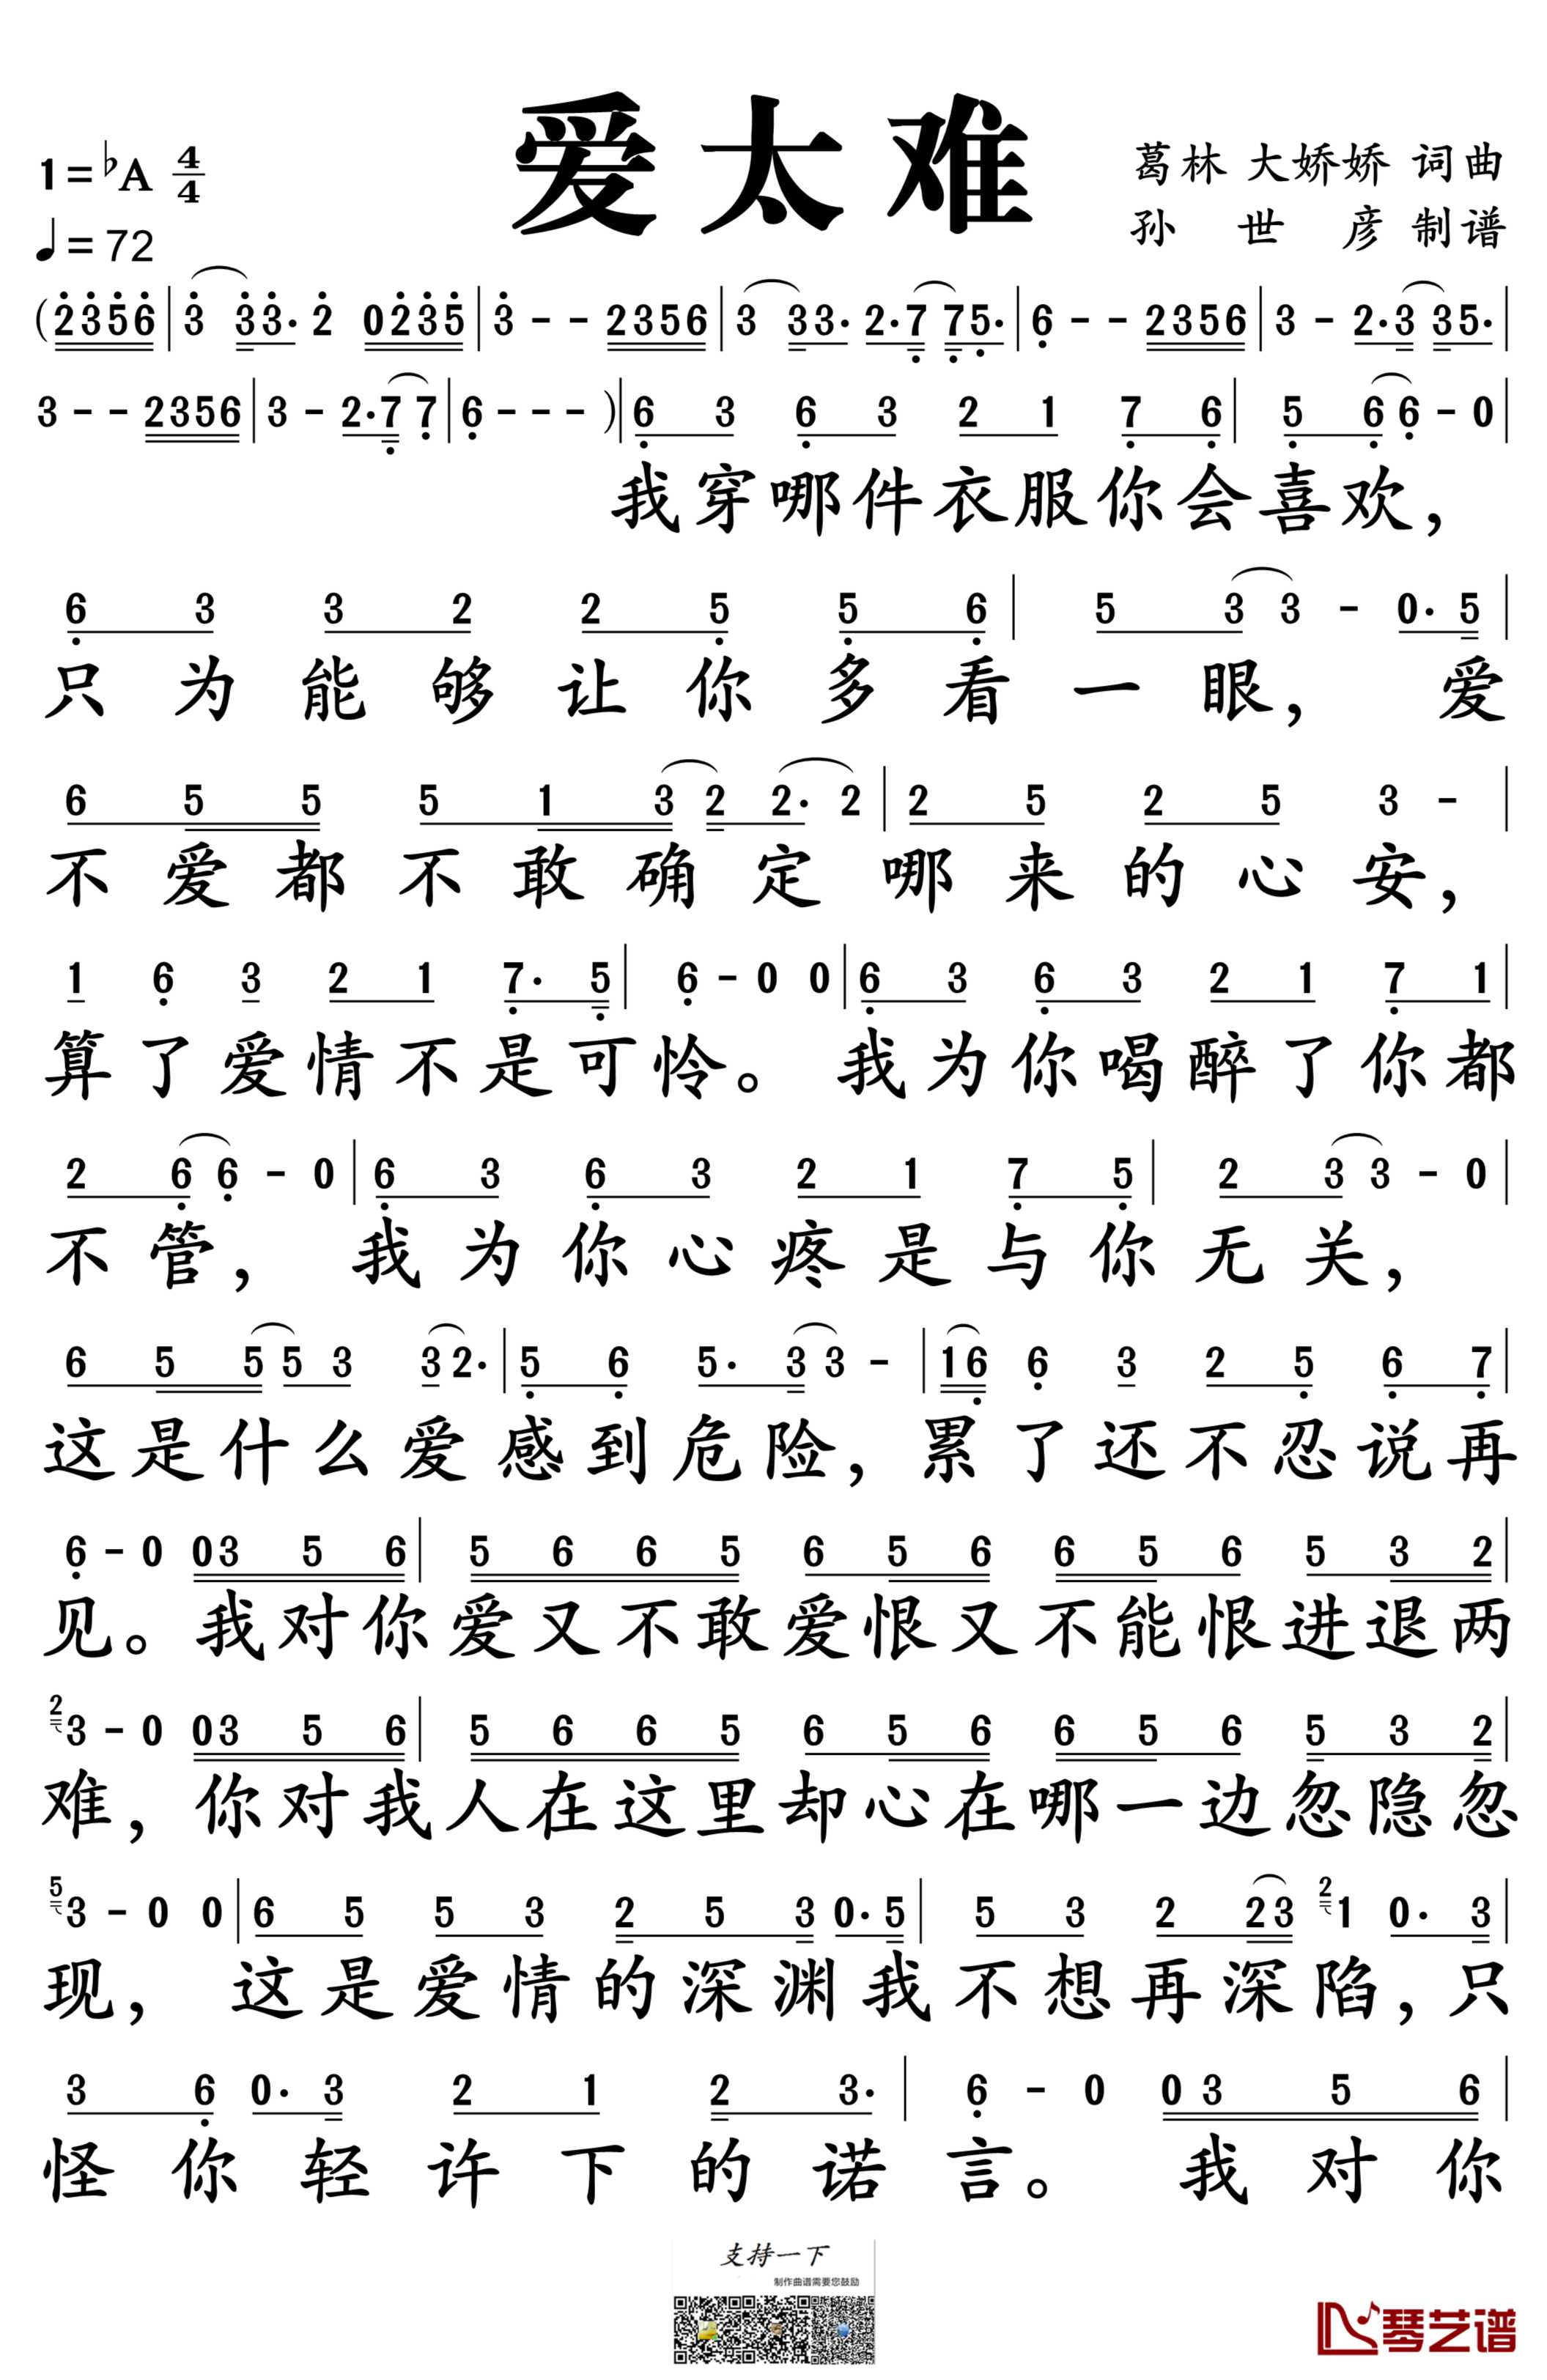 爱太难
1=♭A 4/4
♩=72
葛林 大娇娇 词曲
孙 世 彦 制谱
(2356|3 33. 2 0235|3 - - 2356|3 33. 2.7 75.|6 - - 2356|3 - 2.3 35.|
3 - - 2356|3 - 2.7 7|6 - - - )|6 3 6 3 2 1 7 6|5 6 6 - 0|
我穿哪件衣服你会喜欢，
6 3 3 2 2 5 5 6|5 3 3 - 0. 5|
只为能够让你多看一眼， 爱
6 5 5 5 1 3 2 2. 2|2 5 2 5 3 -|
不爱都不敢确定哪来的心安，
1 6 3 2 1 7. 5|6 - 0 0|6 3 6 3 2 1 7 1|
算了爱情不是可怜。 我为你喝醉了你都
2 6 6 - 0|6 3 6 3 2 1 7 5|2 3 3 - 0|
不管， 我为你心疼是与你无关，
6 5 5 5 3 3 2.|5 6 5. 3 3 -|16 6 3 2 5 6 7|
这是什么爱感到危险，累了还不忍说再
6 - 0 03 5 6|5 6 6 5 6 5 6 6 5 6 5 3 2|
见。我对你爱又不敢爱恨又不能恨进退两
2 3 - 0 03 5 6|5 6 6 5 6 5 6 6 5 6 5 3 2|
难，你对我人在这里却心在哪一边忽隐忽
5 3 - 0 0|6 5 5 3 2 5 3 0. 5|5 3 2 23 2 1 0. 3|
现， 这是爱情的深渊我不想再深陷，只
3 6 0. 3 2 1 2 3.|6 - 0 03 5 6|
怪你轻许下的诺言。 我对你
支持一下
制作曲谱需要您鼓励
琴艺谱